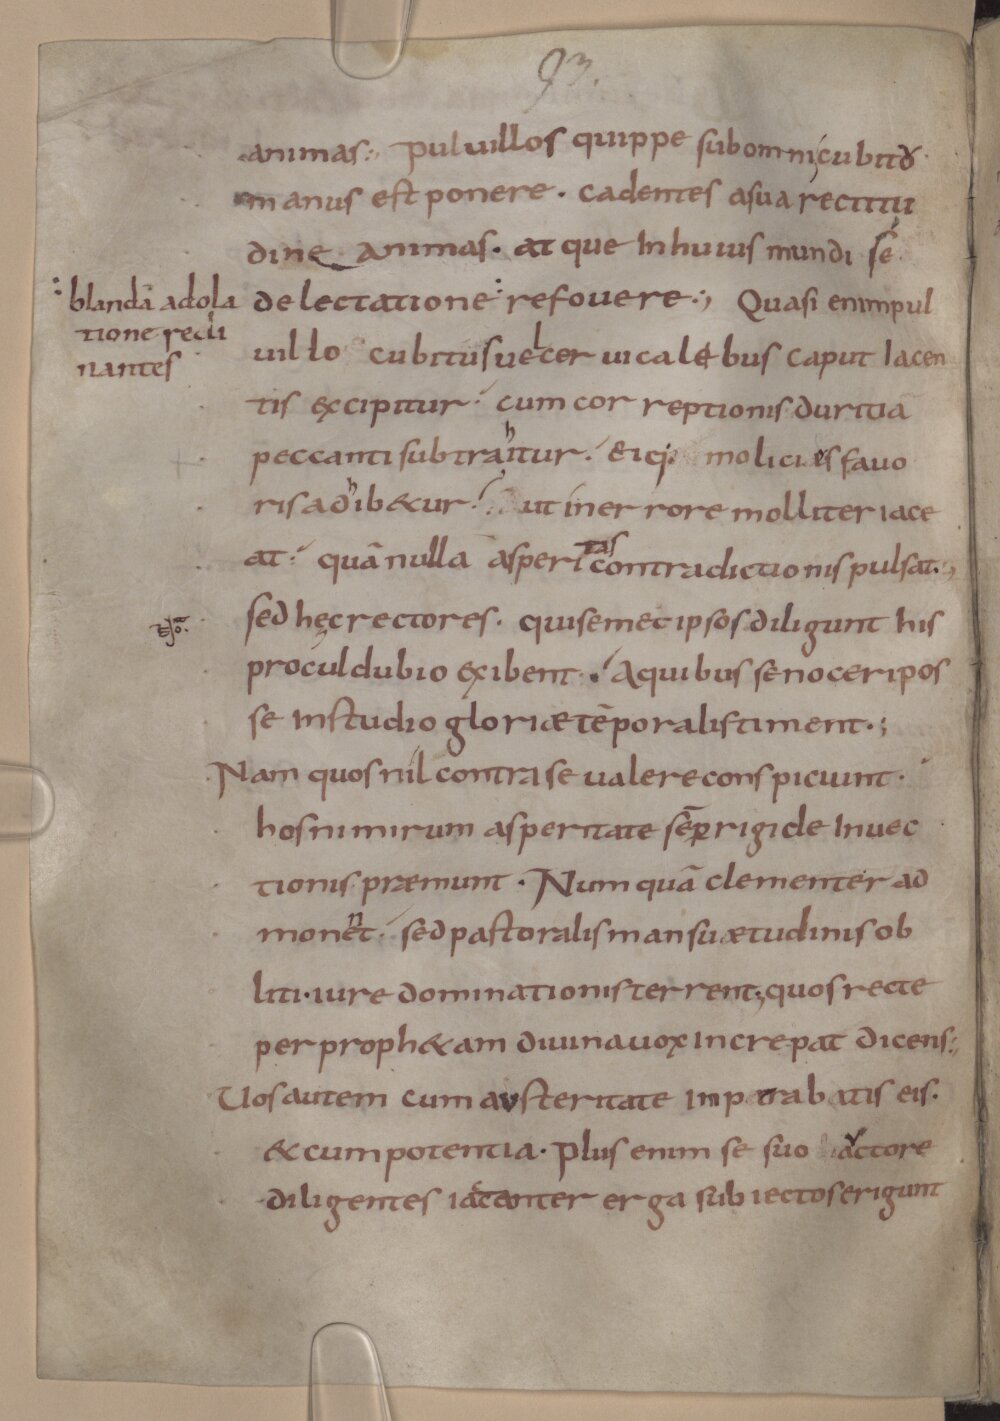 93.
animas:, Pulvillos quippe subomni cubito
manus est ponere. cadentes asua rectitu
dine animas. atque Inhuius mundi se
delectatione refovere:, Quasi enimpul
: blandā adola
tione recli
nantes
uillo cubitus uelcer uicalębus caput Iacen
tis excipitur. cum cor reptionis duritia
peccanti subtrahitur. Eiq; molicies favo
ris adhib&ur. ut iner rore molliter iace
at. quā nulla asperitas contradictionis pulsat.,
sed hęc rectores. quisemet ipsos diligunt his
proculdubio exibent. Aquibus se noceri pos
se Instudio gloriæ tēporalis timent.;
Nam quos nil contra se ualere conspiciunt.
hos nimirum asperitate sēp rigide Inuec
tionis præmunt. Numquā clementer ad
monent. sed pastoralis mansuætudinis ob
liti. iure dominationis terrent; quos recte
per proph&am diuina uox Increpat dicens:,
Uos autem cum austeritate Inperabatis eis.
& cum potentia. Plus enim se suo auctore
diligentes iactanter erga subiectos erigunt